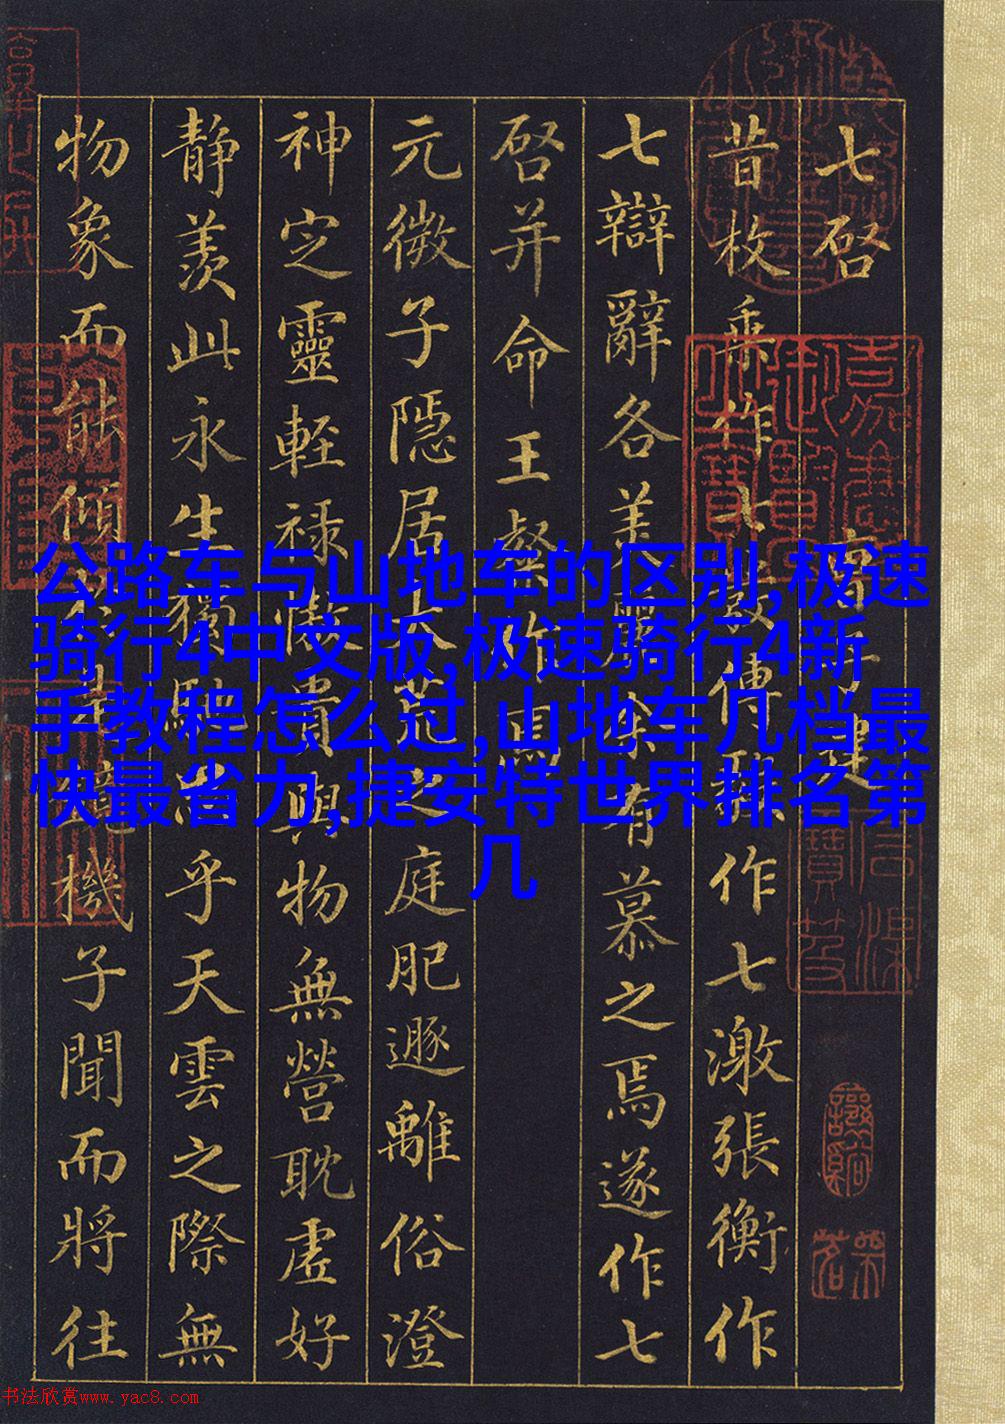 七啓 曹子建
昔枚乘作七發傅毅作七激張衡作
七辯辭各美麗余有慕之焉遂作七
啓并命王粲作焉
元微子隱居大荒之庭肥遯離俗澄
神定靈輕祿傲貴與物無營耽虛好
靜羨此永生獨馳思乎天雲之際無
物象而能傾於是鏡機子聞而將往
公路车与山地车的区别,极速
骑行4中文版,极速骑行4新
手教程怎么过,山地车几档最
快最省力,捷安特世界排名第
几
书法欣赏www.yac8.com